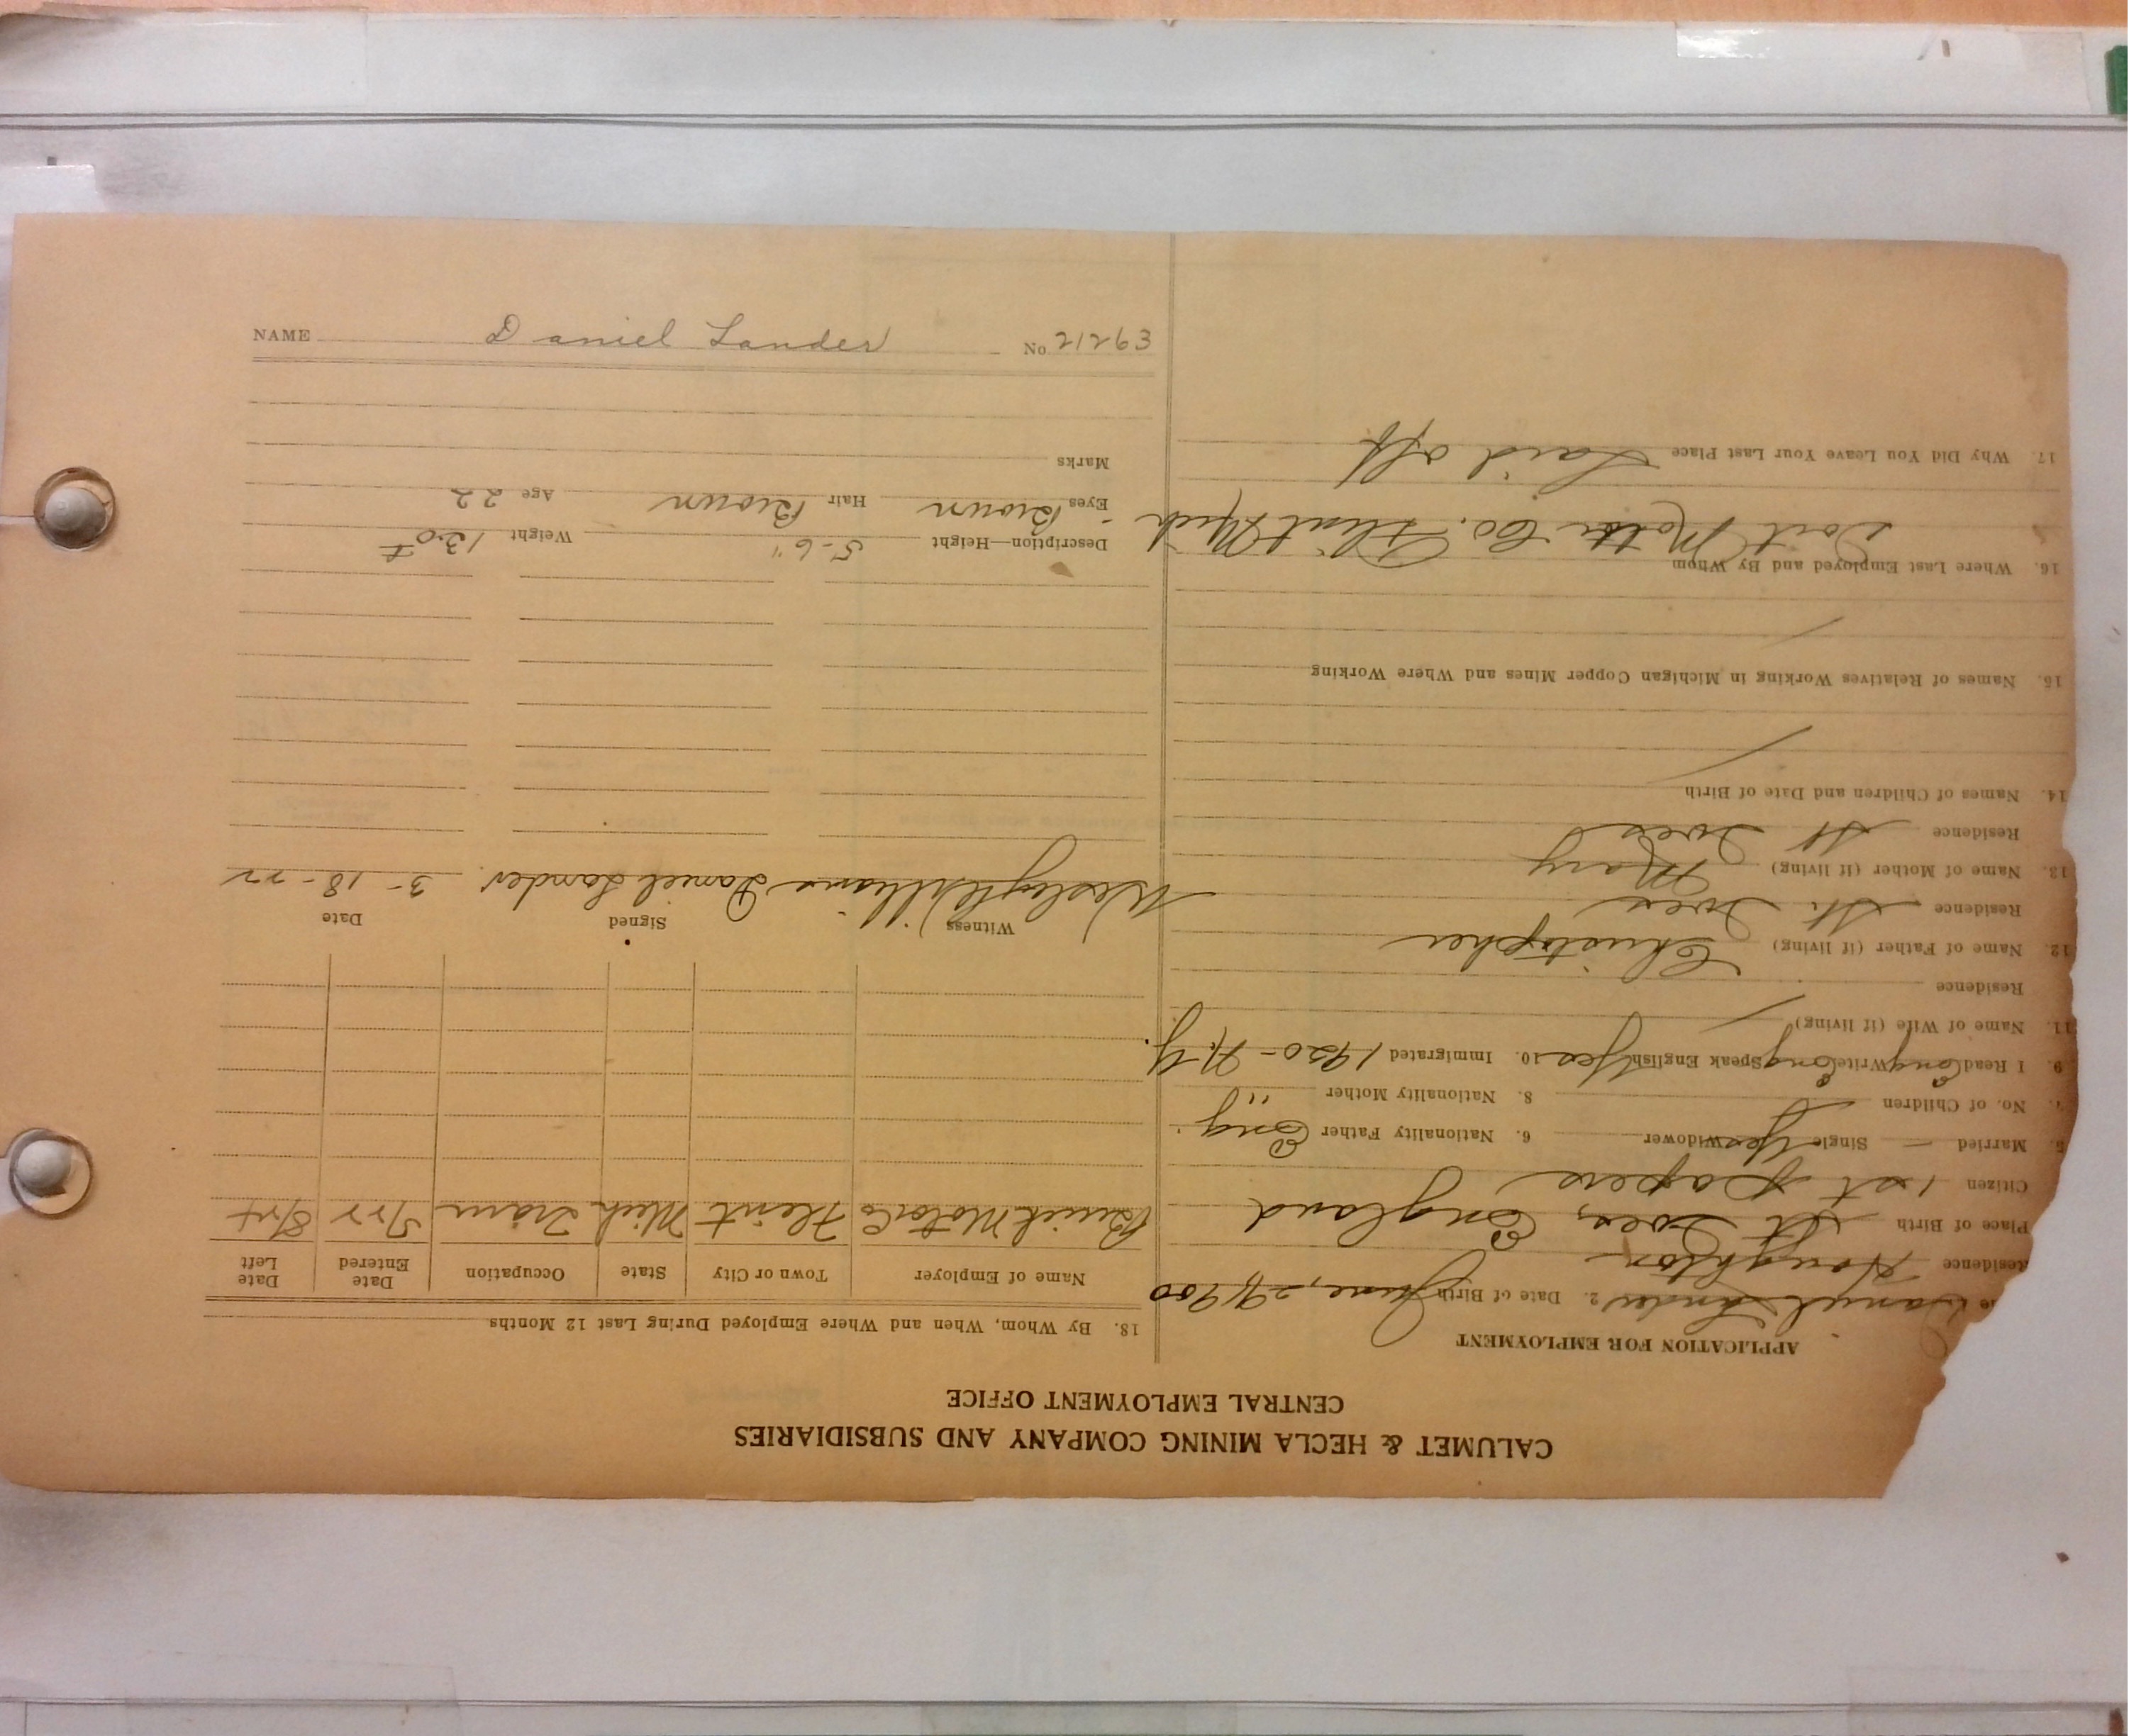 CALUMET & HECLA MINING COMPANY AND SUBSIDIARIES
CENTRAL EMPLOYMENT OFFICE
APPLICATION FOR EMPLOYMENT
Daniel Lander 2. Date of Birth June, 29, 1900
Residence Houghton
Place of Birth St Ives, England
Citizen 1st papers
5. Married — Single Yes Widower 6. Nationality Father Eng.
7. No. of Children 8. Nationality Mother "
9. I Read Eng Write Eng Speak English Yes 10. Immigrated 1920 - N.Y.
11. Name of Wife (if living)
Residence
12. Name of Father (if living) Christopher
Residence St. Ives
13. Name of Mother (if living) Mary
Residence St Ives
14. Names of Children and Date of Birth
15. Names of Relatives Working in Michigan Copper Mines and Where Working
16. Where Last Employed and By Whom
Dort Motor Co. Flint Mich
17. Why Did You Leave Your Last Place Laid off
18. By Whom, When and Where Employed During Last 12 Months
Name of Employer Town or City State Occupation Date Entered Date Left
Buick Motor Co Flint Mich
Witness Signed Date
Wesley Williams Daniel Lander. 3-18-22
Description—Height 5-6" Weight 130#
Eyes Brown Hair Brown Age 22
Marks
NAME Daniel Lander No 21263